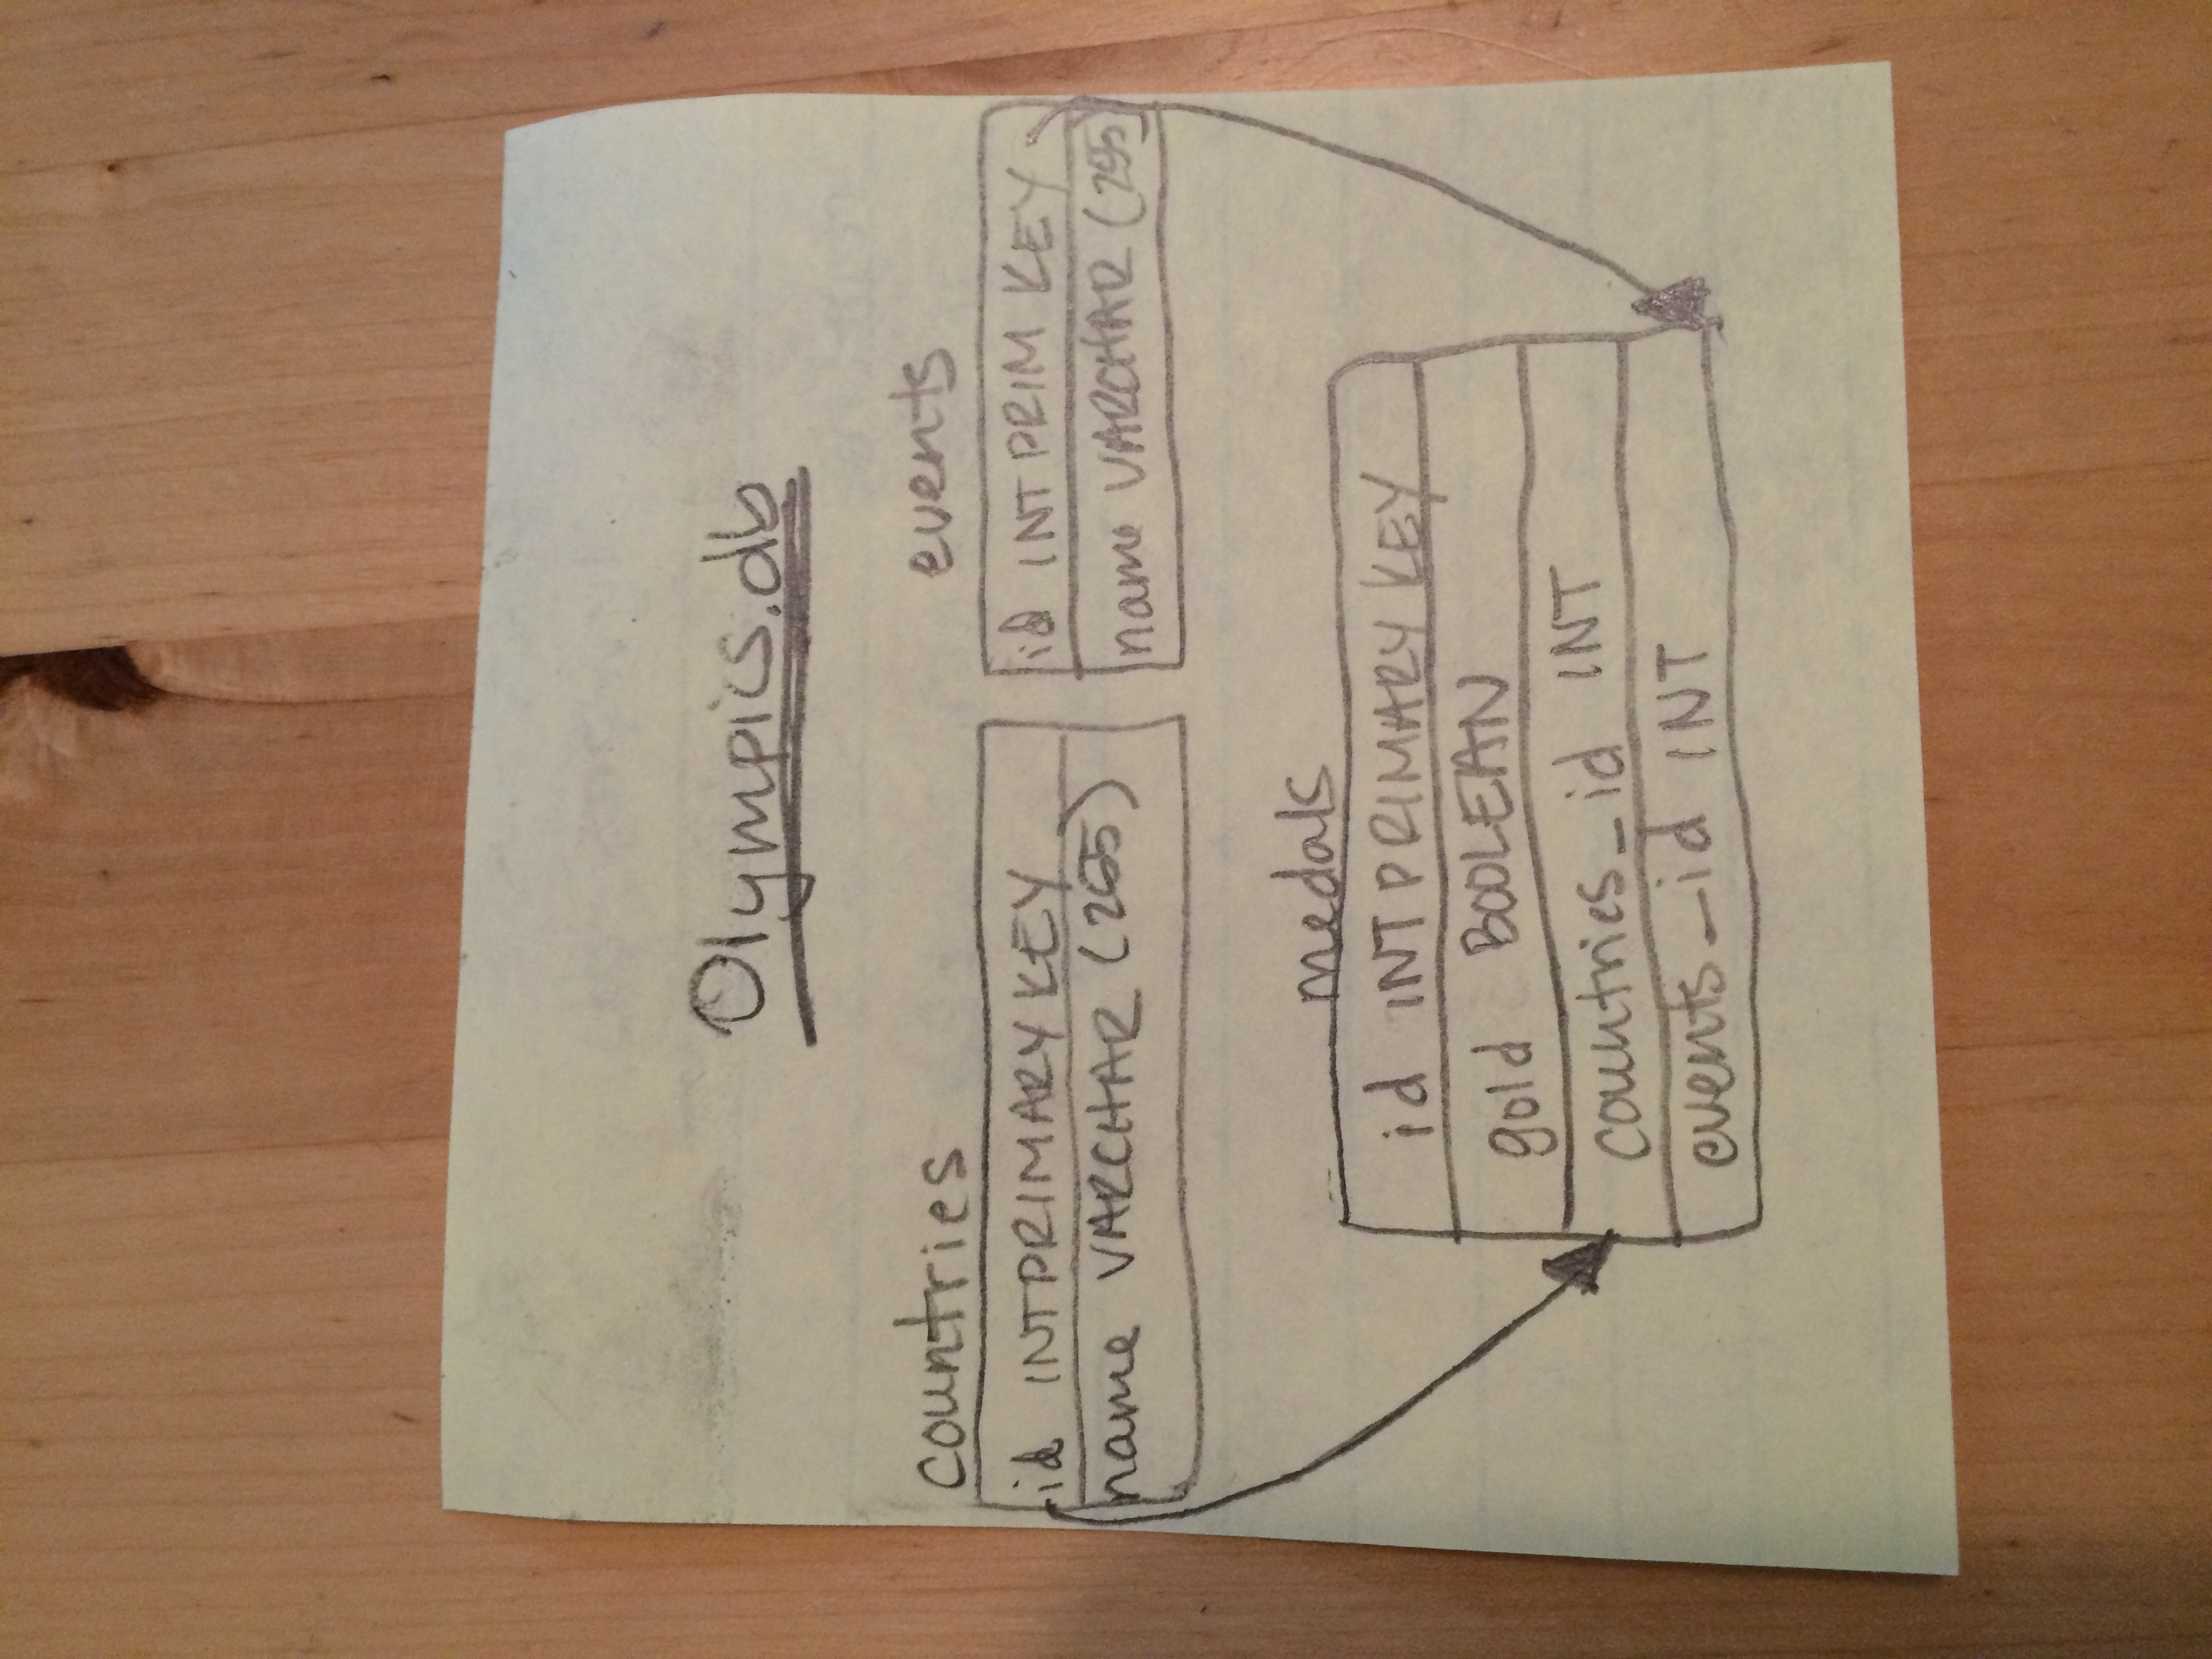 Olympics.db
countries
id INT PRIMARY KEY
name VARCHAR (255)
events
id INT PRIM KEY
name VARCHAR (255)
medals
id INT PRIMARY KEY
gold BOOLEAN
countries_id INT
events_id INT